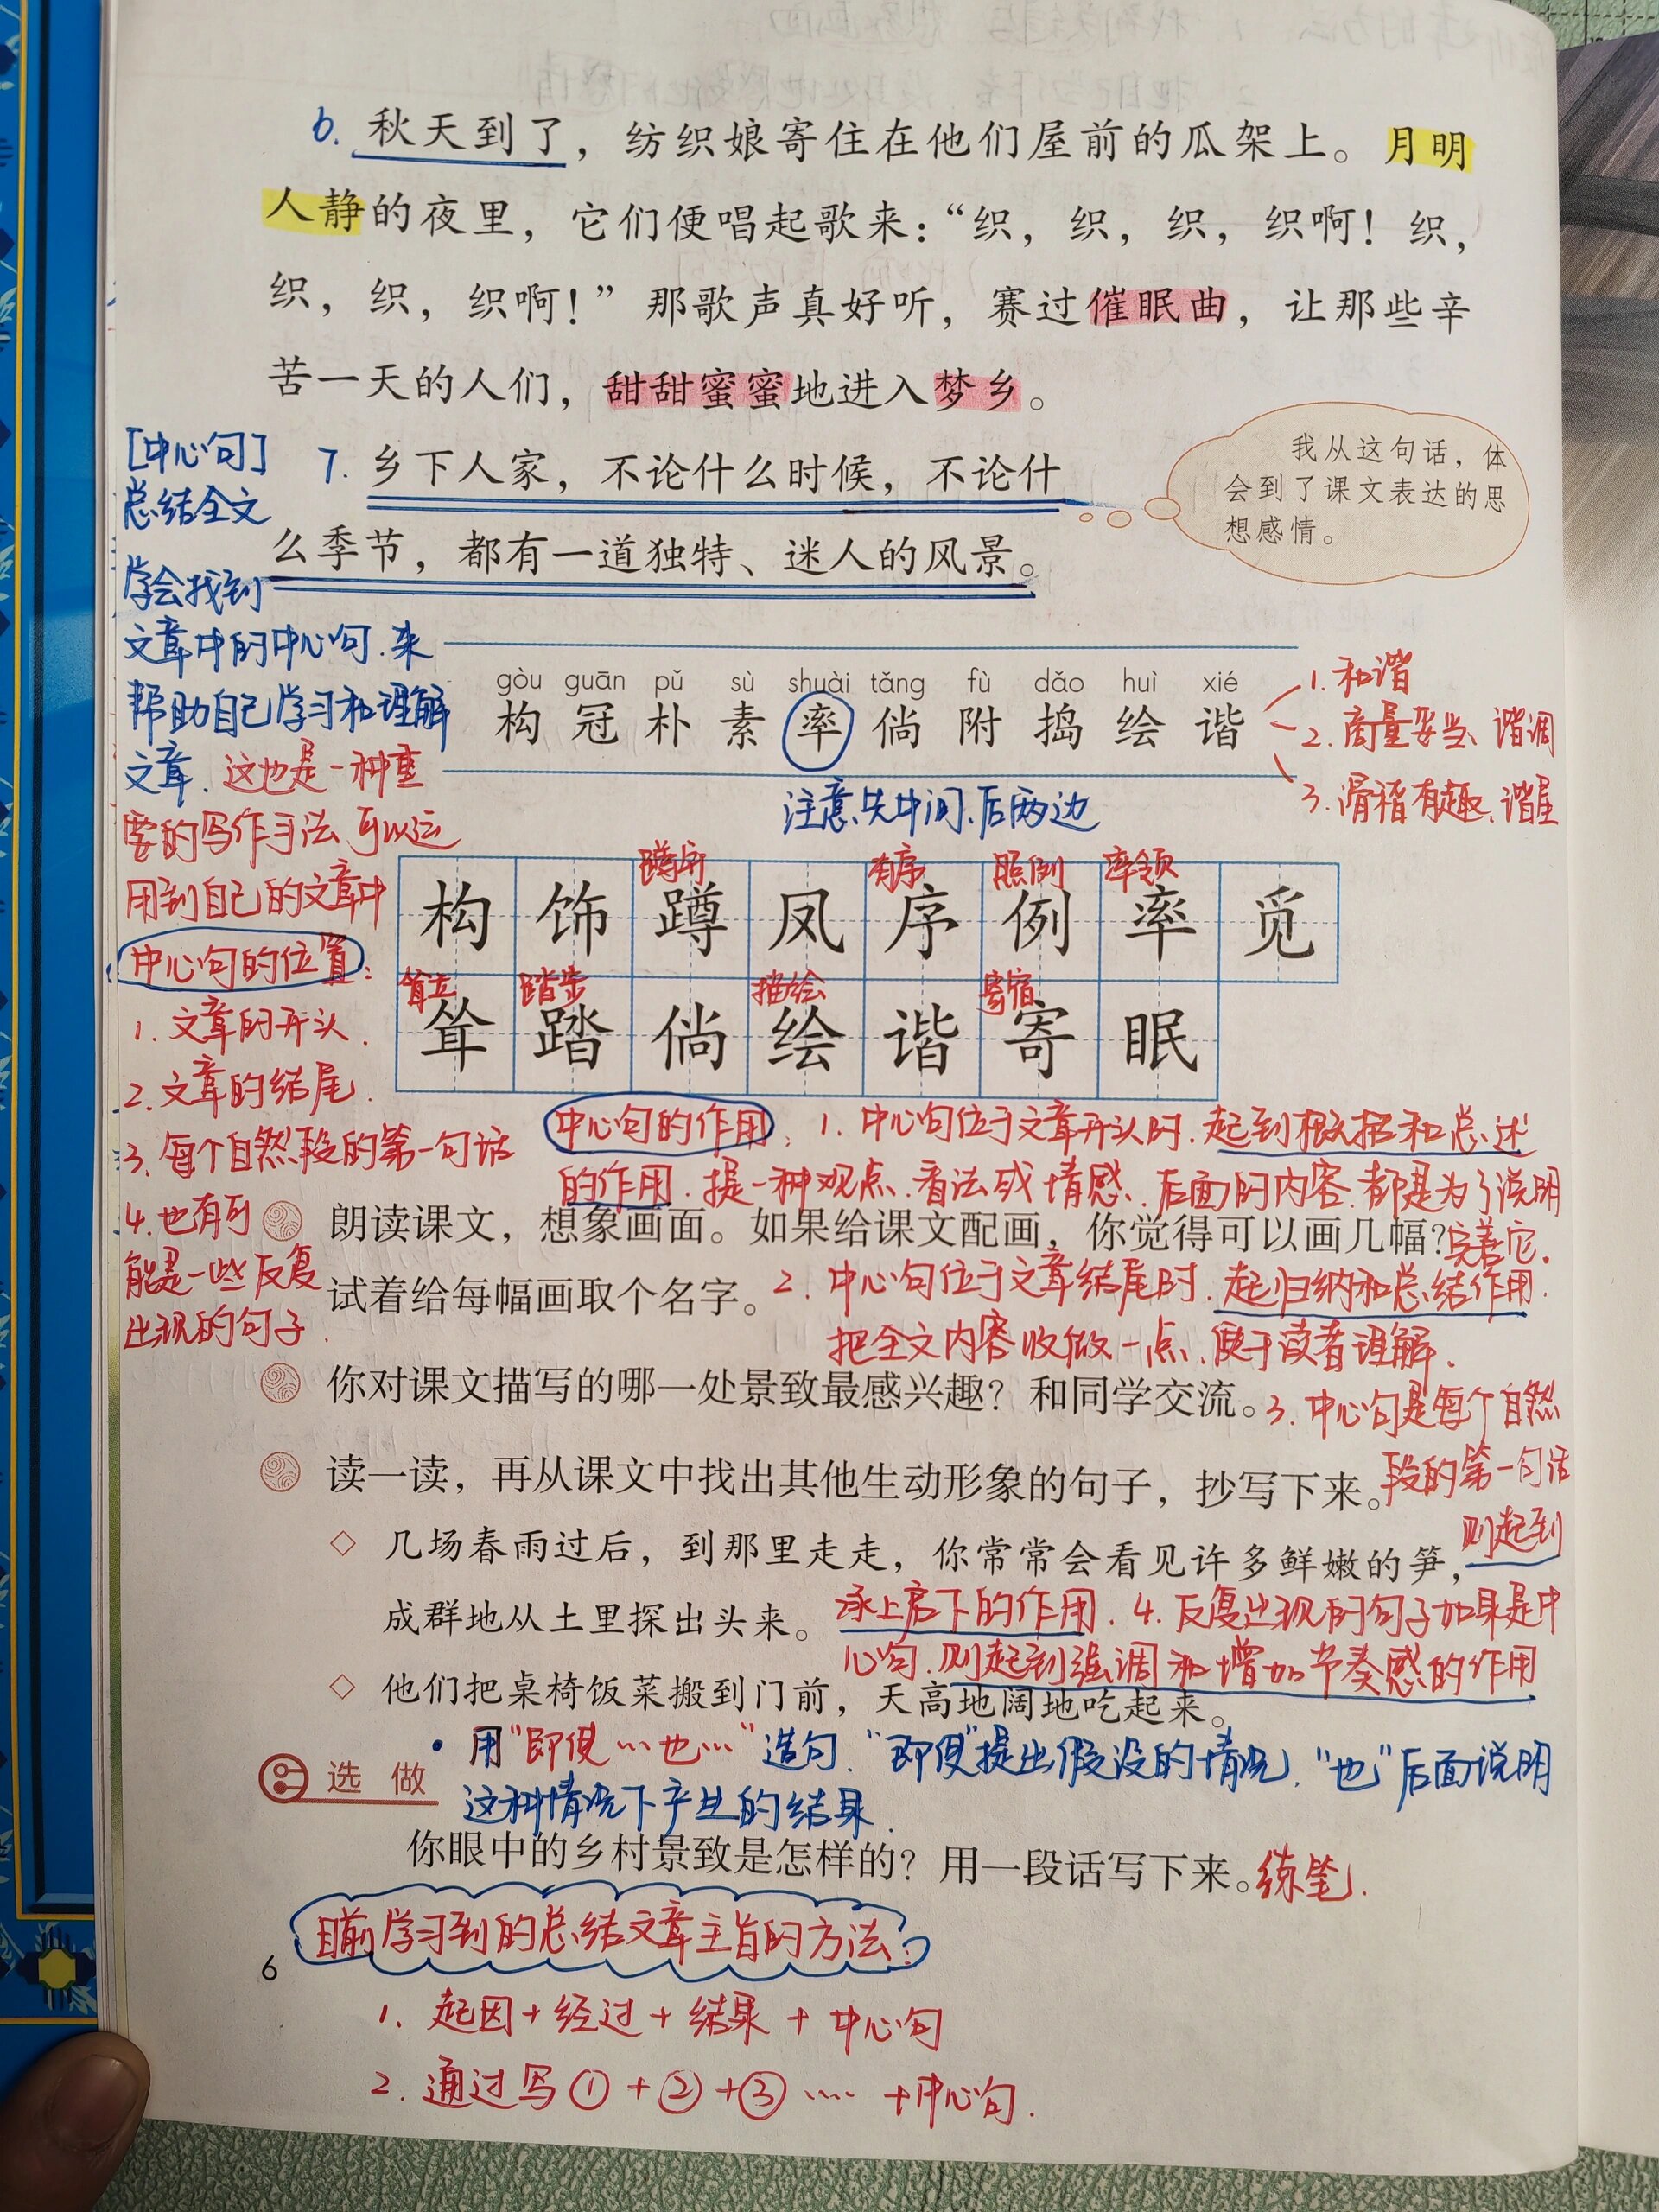 6. 秋天到了，纺织娘寄住在他们屋前的瓜架上。月明
人静的夜里，它们便唱起歌来：“织，织，织，织啊！织，
织，织，织啊！”那歌声真好听，赛过催眠曲，让那些辛
苦一天的人们，甜甜蜜蜜地进入梦乡。
7. 乡下人家，不论什么时候，不论什
么季节，都有一道独特、迷人的风景。
我从这句话，体
会到了课文表达的思
想感情。
[中心句]
总结全文
学会找到
文章中的中心句.来
帮助自己学习和理解
文章.这也是一种重
要的写作手法.可以运
用到自己的文章中
中心句的位置：
1. 文章的开头.
2. 文章的结尾.
3. 每个自然段的第一句话
4. 也有可
能是一些反复
出现的句子.
gòu guān pǔ sù shuài tǎng fù dǎo huì xié
构 冠 朴 素 率 倘 附 捣 绘 谐
1. 和谐
2. 商量妥当、谐调
3. 滑稽有趣、谐星
注意先中间、后两边
蹲开 有序 照例 率领
构 饰 蹲 凤 序 例 率 觅
耸立 踏步 描绘 寄宿
耸 踏 倘 绘 谐 寄 眠
中心句的作用：1. 中心句位于文章开头时.起到概括和总述
的作用.提一种观点、看法或情感、后面的内容.都是为了说明
完善它.
2. 中心句位于文章结尾时.起归纳和总结作用.
把全文内容收做一点、便于读者理解.
3. 中心句是每个自然
段的第一句话
则起到
承上启下的作用.4. 反复出现的句子如果是中
心句.则起到强调和增加节奏感的作用
朗读课文，想象画面。如果给课文配画，你觉得可以画几幅？
试着给每幅画取个名字。
你对课文描写的哪一处景致最感兴趣？和同学交流。
读一读，再从课文中找出其他生动形象的句子，抄写下来。
◇ 几场春雨过后，到那里走走，你常常会看见许多鲜嫩的笋，
成群地从土里探出头来。
◇ 他们把桌椅饭菜搬到门前，天高地阔地吃起来。
• 用“即使…也…”造句.“即使”提出假设的情况.“也”后面说明
这种情况下产生的结果.
选做
你眼中的乡村景致是怎样的？用一段话写下来。练笔.
目前学习到的总结文章主旨的方法：
6
1. 起因+经过+结果+中心句
2. 通过写①+②+③……+中心句.